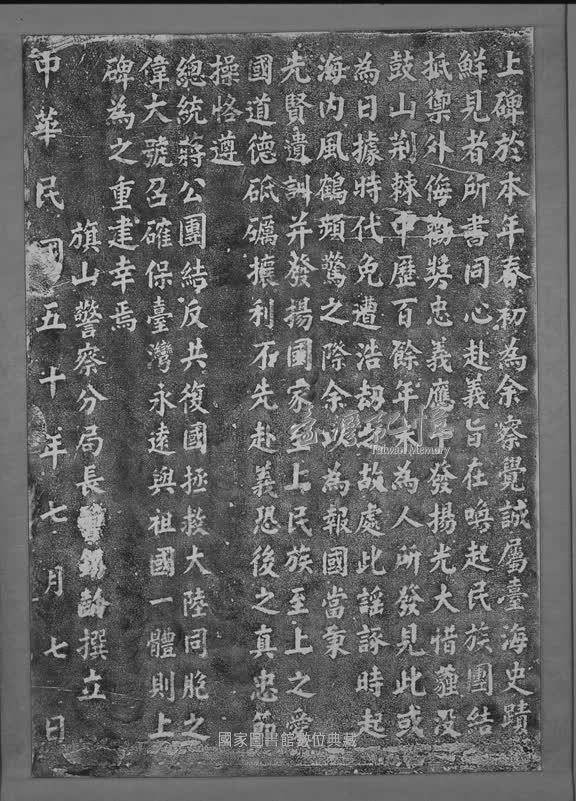 上碑於本年春初為余察覺誠屬臺海史蹟
鮮見者所書同心赴義旨在喚起民族團結
抵禦外侮勸獎忠義應予發揚光大惜薶沒
鼓山荊棘中歷百餘年未為人所發見此或
為日據時代免遭浩劫之故處此謠諑時起
海內風鶴頻驚之際余以為報國當秉
先賢遺訓并發揚國家至上民族至上之舜
國道德砥礪攘利不先赴義恐後之真忠節
操恪遵
總統蔣公團結反共復國拯救大陸同胞之
偉大號召確保臺灣永遠與祖國一體則上
碑為之重建幸焉
旗山警察分局長 撰立
中華民國五十年七月七日
臺灣記憶
Taiwan Memory
國家圖書館數位典藏